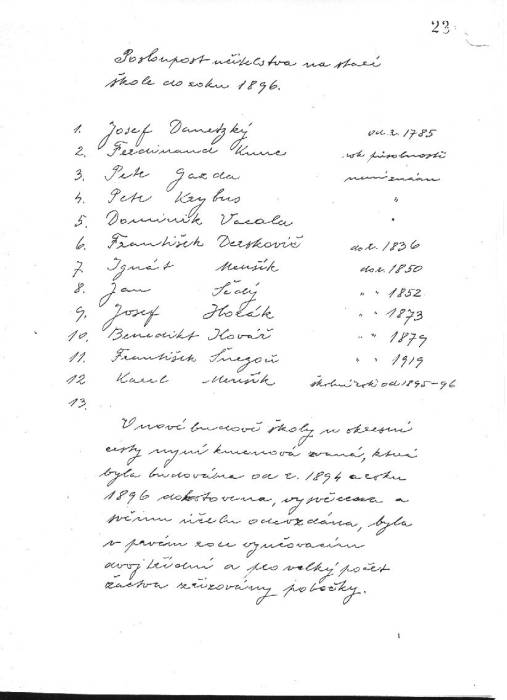 23
Posloupost učitelstva na stací
škole do roku 1896.
1. Josef Danetzký od r. 1785
2. Ferdinand Kunc rok působnosti
3. Petr Gazda není znám
4. Petr Krybus "
5. Dominik Vacala "
6. František Derskovič do r. 1836
7. Ignát Menšík do r. 1850
8. Jan Šedý " " 1852
9. Josef Horák " " 1873
10. Benedikt Kovář " " 1879
11. František Šnegoň " " 1919
12 Karel Menšík školní rok od 1895-96
13.
V nové budově školy u okresní
cesty nyní kmenová zvaná, která
byla budována od r. 1894 a roku
1896 dohotovena, vysvěcena a
svému účelu odevzdána, byla
v prvém roce vyučováním
dvojtřídní a pro velký počet
žactva zřizovány pobočky.